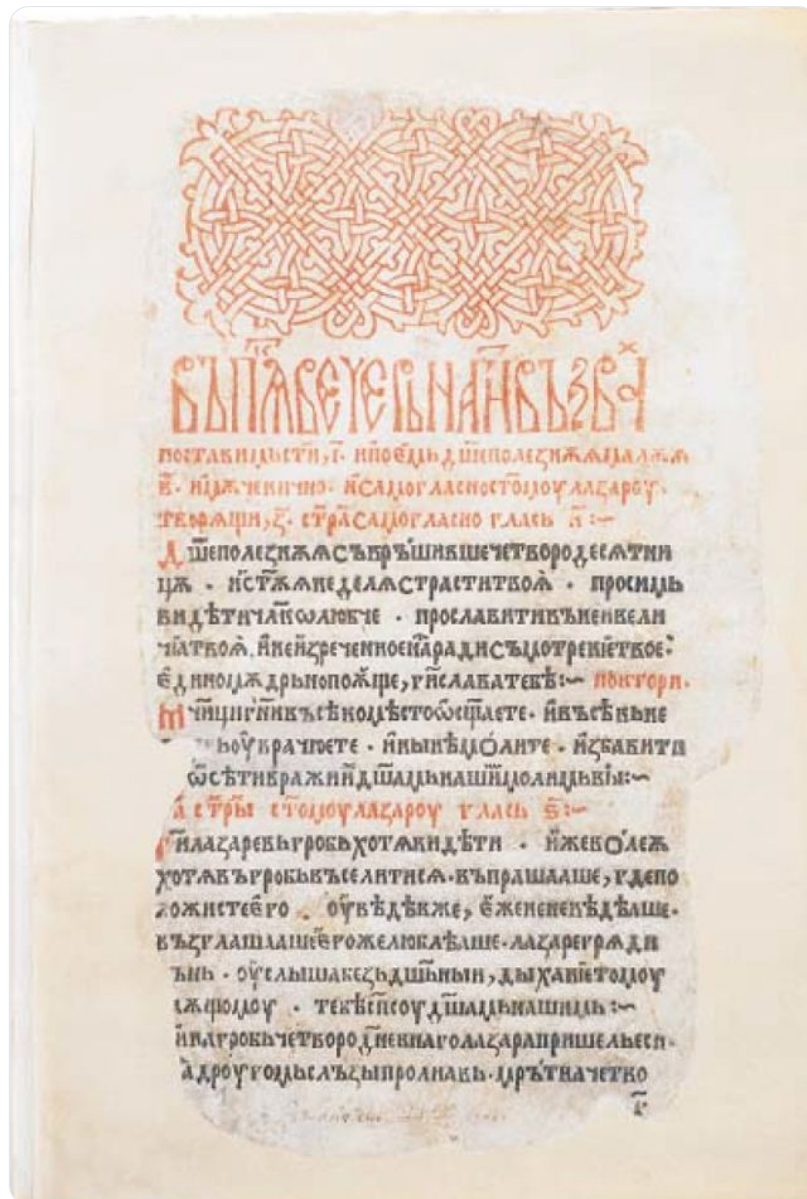 въпѧ҃вечерьнагн҃възвах
поставимьстїи, і҃. ипоемьдш҃еполезнѫѧмалѫѧ
в҃. имѫченично. исамогласностомоулазароу.
творѧщи, ѕ҃. стр҃асамогласно гласъ и҃:~
Дш҃еполезнѫѧсъврьшившечетвородесѧтни
цѫ . ист҃ѫѧнеделѧстраститвоѧ . просимь
видѣтичл҃колюбче . прославитивънеивели
чїатвоѧ инеизреченноенарадисъмотренїетвое:
единомѫдрьнопоѫще, ги҃славатебѣ:~ повтори.
Мчн҃цигн҃ивъсѣкомѣстоѡсщ҃аете. ивъсѣкьне
оуврачюете . инынѣмолите . избавити
ѿсѣтивражїидш҃амьнашимолимьвы:~
а стр҃ы ст҃омоулазароу гласъ ѕ҃:~
Ги҃лазаревьгробьхотѧвидѣти . ижеволеѫ
хотѧвъгробьвъселитисѧ.въпрашааше, гдепо
ложистеего . оувѣдѣвже, ежененевѣдѣаше.
възглашаашеегожелюблѣаше.лазарегрѧди
ънь . оуслышабездш҃ьныи, дыханїетомоу
ѫщомоу . тебѣспс҃оудш҃амьнашимь:~
инагробьчетвородн҃евнаголазарапришельеси.
адроугомьслъзыпролїавь.мрътвачетво
г҃